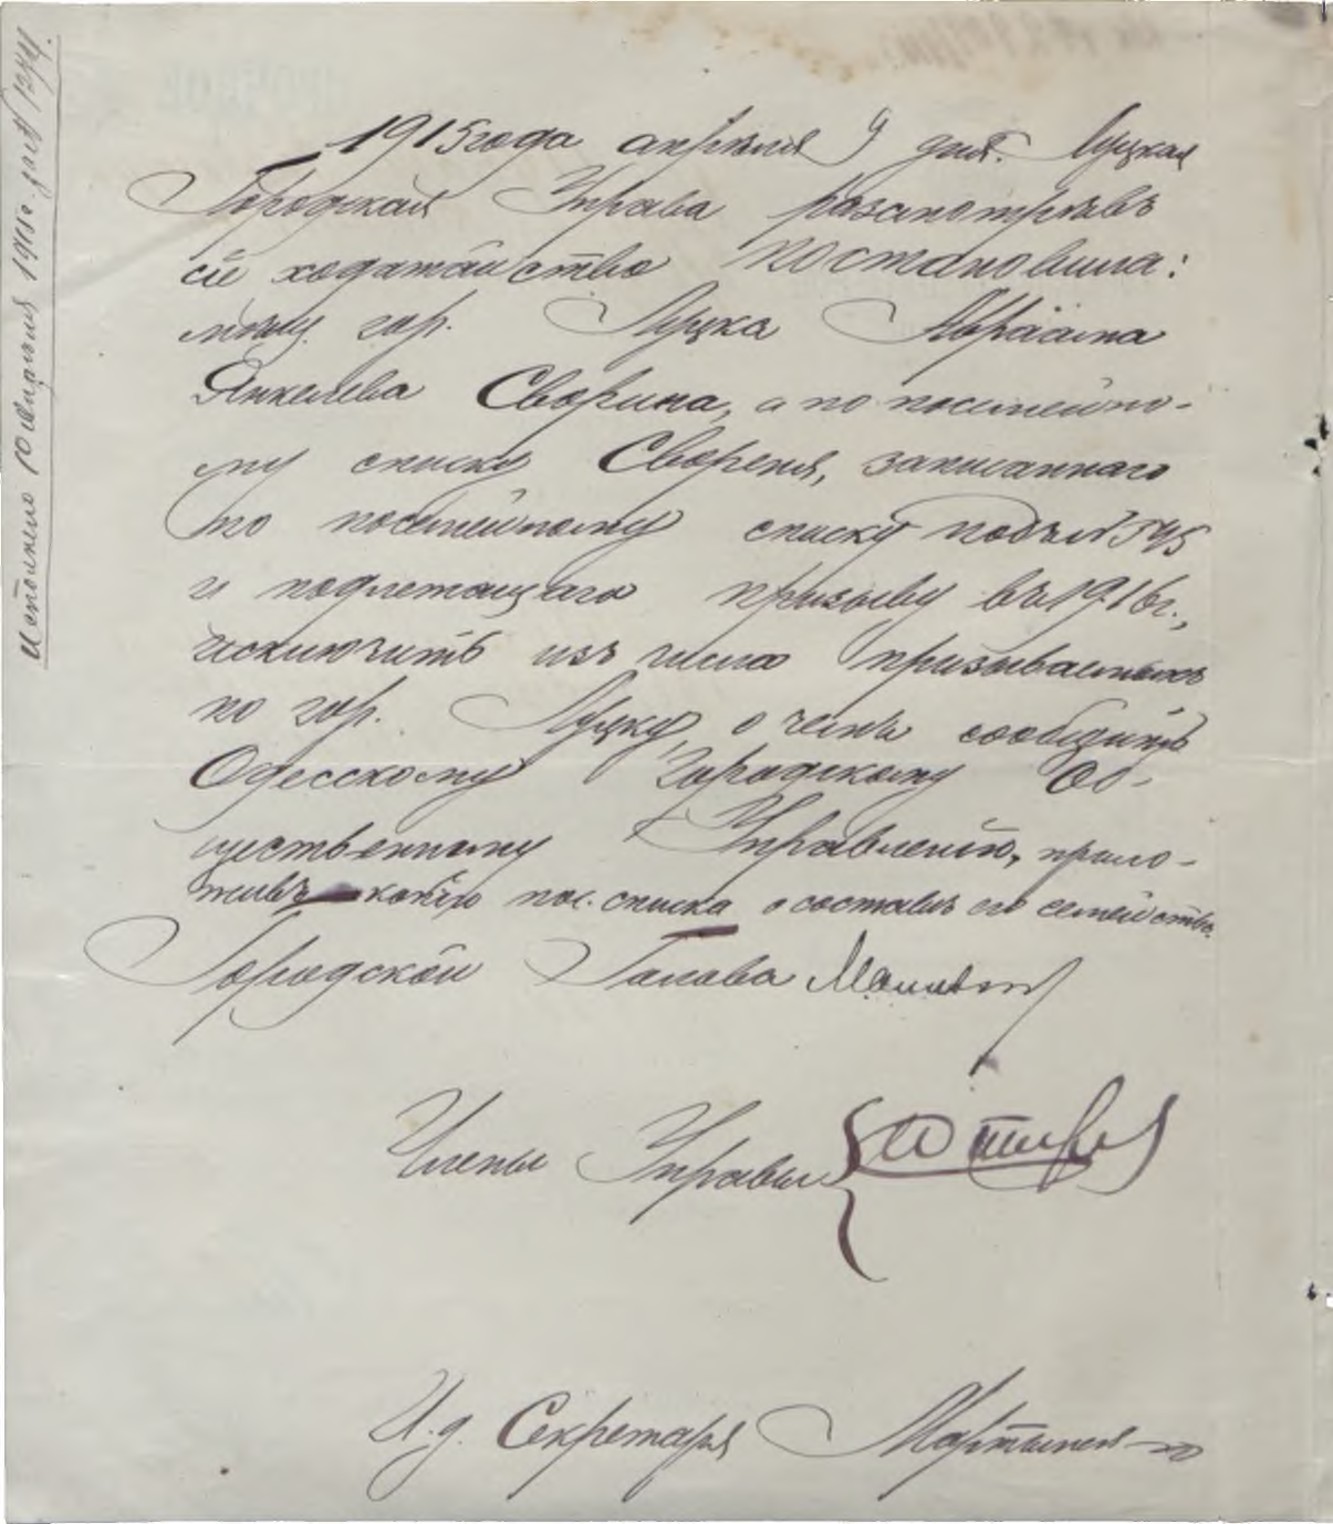 1915 года апрѣля 9 дня. Луцкая
Городская Управа разсмотрѣвъ
сіе ходатайство постановила:
мѣщ. гор. Луцка Абраама
Янкелева Сворина, а по посемейно-
му списку Свореня, записаннаго
по посемейному списку подъ № 545
и подлежащаго призыву въ 1916 г.,
исключить изъ числа призываемыхъ
по гор. Луцку, о чемъ сообщить
Одесскому Городскому Об-
щественному Управленію, прило-
живъ копію пос. списка о составѣ его семейства.
Городской Голова
Члены Управы
И. д. Секретаря
Исполнено 10 апрѣля 1915 г.